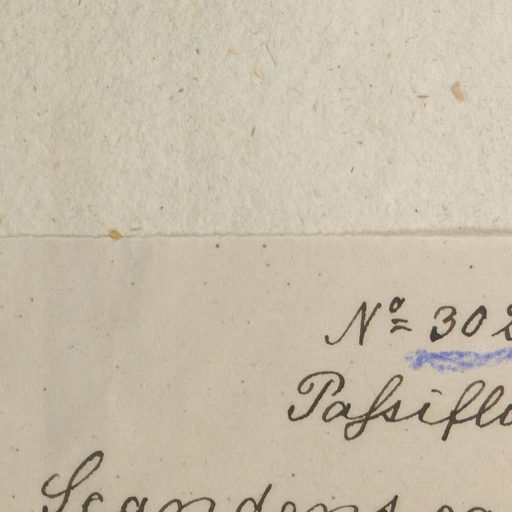 Nº 302
Paſsiflo
Scandens ca